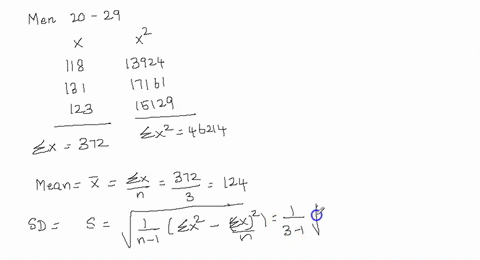 Men 20 - 29
x x²
118 13924
131 17161
123 15129
Σx = 372 Σx² = 46214
Mean = x̄ = Σx/n = 372/3 = 124
SD = S = √(1/(n-1) (Σx² - (Σx)²/n) = 1/(3-1) √